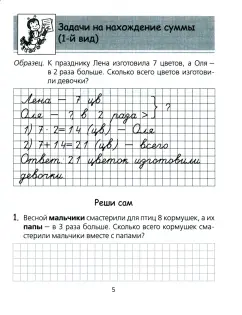 Задачи на нахождение суммы
(1-й вид)
Образец. К празднику Лена изготовила 7 цветов, а Оля –
в 2 раза больше. Сколько всего цветов изготови-
ли девочки?
Лена – 7 цв. } ?
Оля – ? в 2 раза >
1) 7 · 2=14 (цв) – Оля
2) 7+14=21 (цв) – всего
Ответ: 21 цветок изготовили
девочки.
Реши сам
1. Весной мальчики смастерили для птиц 8 кормушек, а их
папы – в 3 раза больше. Сколько всего кормушек сма-
стерили мальчики вместе с папами?
5